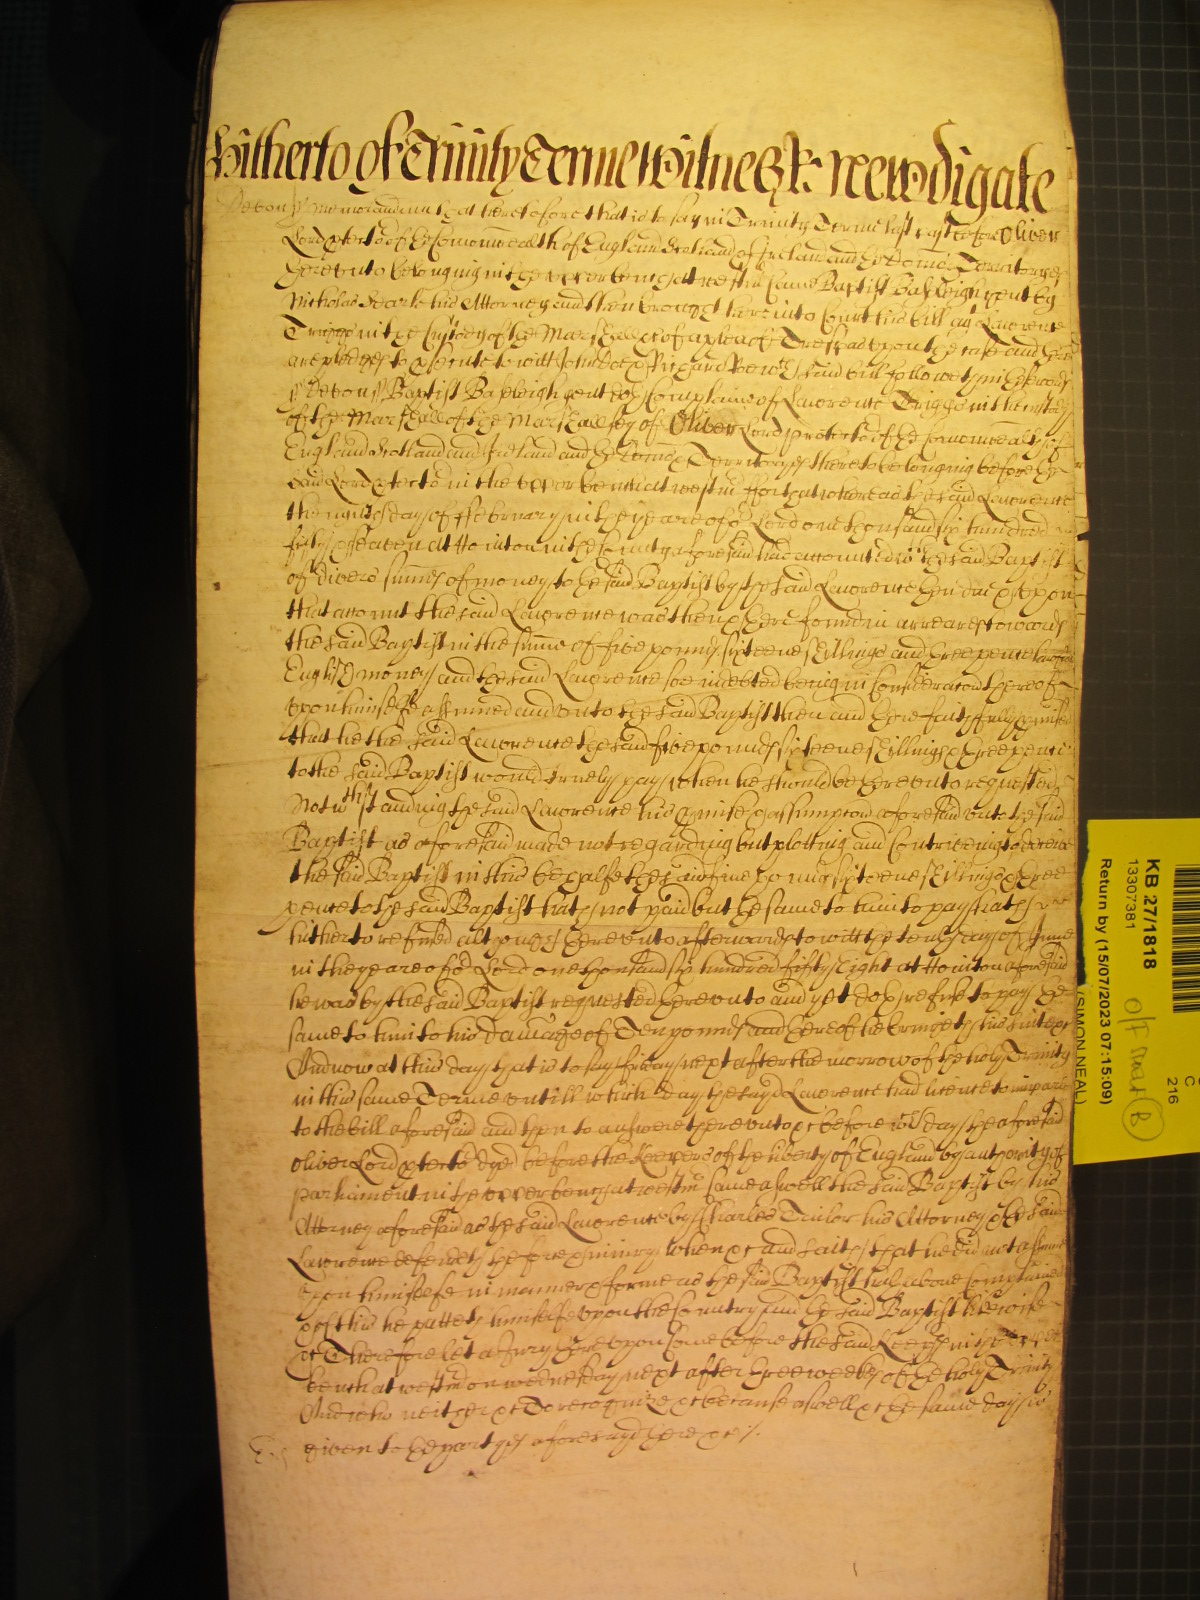 Hitherto of Trinity Terme Witnes R: Newdigate
Devon ss Memorandum that heretofore that is to say in Trinity Terme last past before Oliver
Lord ptector of the Comonwealth of England Scotland & Ireland and the Domc̃ons & Territoryes
thereunto belonging in the upper bench at Westm̃ came Baptist Bakleigh gent by
Nicholas Searle his Attorney and then brought here into Court his bill agt Lawrence
Triggs in the Custody of the Marshall &c of a plea of Trespas upon the case and there
are pledges to psecute to witt John Doe & Richard Roe wch said bill followeth in these words
ss Devon ss Baptist Bakleigh gent doth Complaine of Lawrence Triggs in the custody
of the Marshall of the Marshallsey of Oliver Lord protector of the Comonwealth of
England Scotland and Ireland and the Domc̃ons & Territoryes thereto belonging before the
said Lord ptector in the upper bench at Westm̃ For that whereas the said Lawrence
the day of February in the yeare of or Lord one thousand six hundred
fifty & seaven at Honiton in the County aforesaid had accounted wth the said Baptist
of divers sum̃es of money to the said Baptist by the said Lawrence then due & upon
that accompt the said Lawrence was then & there found in arreares towards
the said Baptist in the sum̃e of five pounds sixteene shillings and threepence lawfull
English money and the said Lawrence soe indebted being in Consideracõn thereof
upon himselfe assumed and unto the said Baptist then and there faithfully pmised
that he the said Lawrence the said five pounds sixteene shillings & threepence
to the said Baptist would truely pay when he should be thereunto requested
Notwthstanding the said Lawrence his pmise & assumpcõn aforesaid unto the said
Baptist as aforesaid made not regarding but plotting and Contriveing to deceive
the said Baptist in this behalfe the said five pounds sixteene shillings & three
pence to the said Baptist hath not paid but the same to him to pay hath
hitherto refused although thereunto afterwards to witt the tenth day of June
in the yeare of or Lord one thousand six hundred fifty eight at Honiton aforesaid
he was by the said Baptist requested thereunto and yet doth refuse to pay the
same to him to his damage of Ten pounds and thereof he bringeth his suite &c
And now at this day that is to say friday next after the morrow of the holy Trinity
in this same Terme untill which day the sayd Lawrence had licence to imparle
to the bill aforesaid and then to answere thereunto &c before wch day the aforesaid
Oliver Lord ptector dyed before the Keepers of the liberty of England by authority of
parliament in the upper bench at Westm̃ came aswell the said Baptist by his
Attorney aforesaid as the said Lawrence by Charles Taylor his Attorney & the said
Lawrence defendeth the force & iniury when &c and saith that he did not assume
upon himselfe in manner & forme as the said Baptist hath above Complained
& of this he putteth himselfe upon the Country and the said Baptist likewise
&c Therefore let a Jury thereupon come before the said Keepers in the upper
bench at Westm̃ on wednesday next after three weekes of the holy Trinity
And who neither &c To recognize &c because aswell &c the same day is
given to the partyes aforesayd there &c /.
KB 27/1818
13307381
Return by (15/07/2023 07:15:09)
(SIMON NEAL)
216